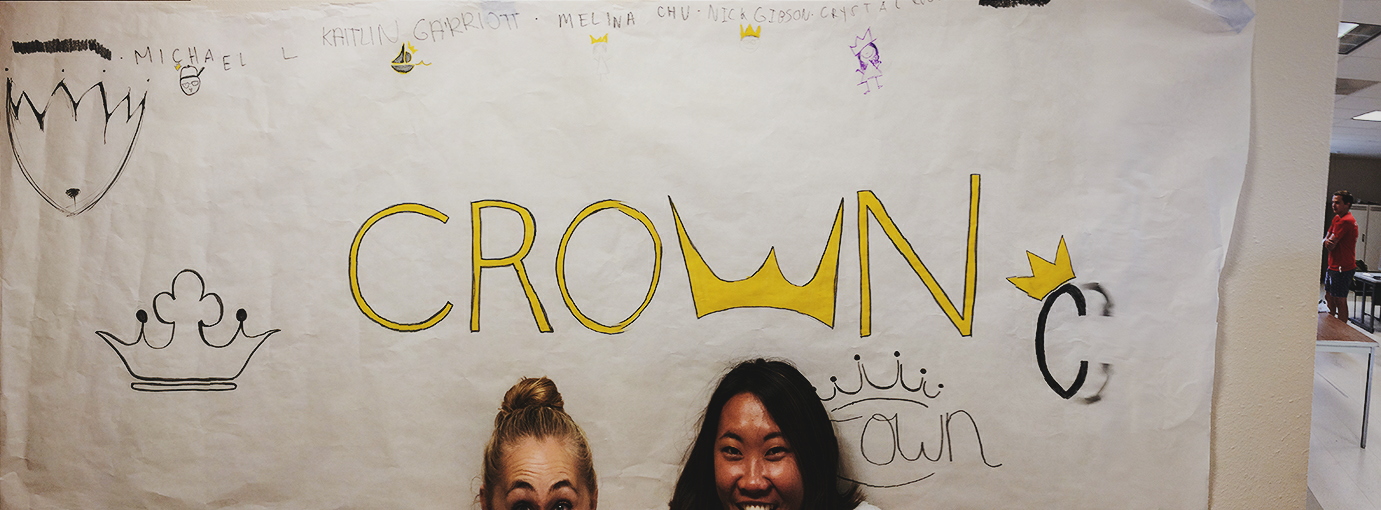 MICHAEL L
KAITLIN GARRIOTT · MELINA CHU · NICK GIBSON · CRYSTAL
CROWN
C
own